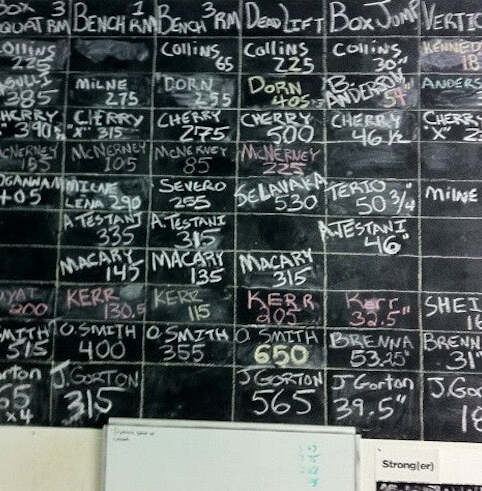 BOX 3 BENCH 1 BENCH 3 DEADLIFT BOX JUMP VERTIC
QUAT RM RM RM
COLLINS COLLINS COLLINS COLLINS KENNED
225 65 225 30" 18
MILNE DORN DORN B. ANDERSON ANDERS
385 275 255 405 54"
CHERRY CHERRY CHERRY CHERRY CHERRY CHERRY
390 "X" 315 275 500 46 1/2 "X" 2
MCNERNEY MCNERNEY MCNERNEY MCNERNEY
155 105 85 225
MILNE SEVERO SELAVAKA TERIO MILNE
+05 LENA 290 255 530 50 3/4
A.TESTANI A.TESTANI A.TESTANI
335 315 46"
MACARY MACARY MACARY
145 135 315
KERR KERR KERR Kerr SHEI
200 130.5 115 205 32.5" 16
SMITH O.SMITH O.SMITH O.SMITH BRENNA BRENN
515 400 355 650 53.25" 31"
rton J.GORTON J GORTON J Gorton J.Go
65 315 565 39.5" 18
x4
Strong(er)